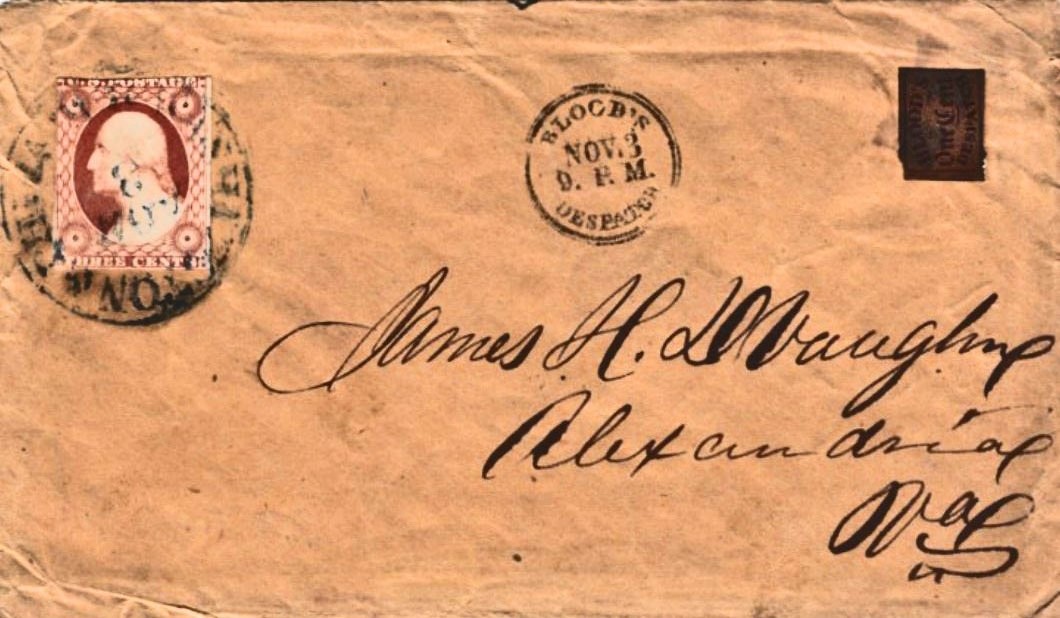 U.S. POSTAGE
THREE CENTS
BLOOD'S
NOV. 3
9. P. M.
DESPATCH
One Cent
James H. D Vaughn
Alexandria
Va